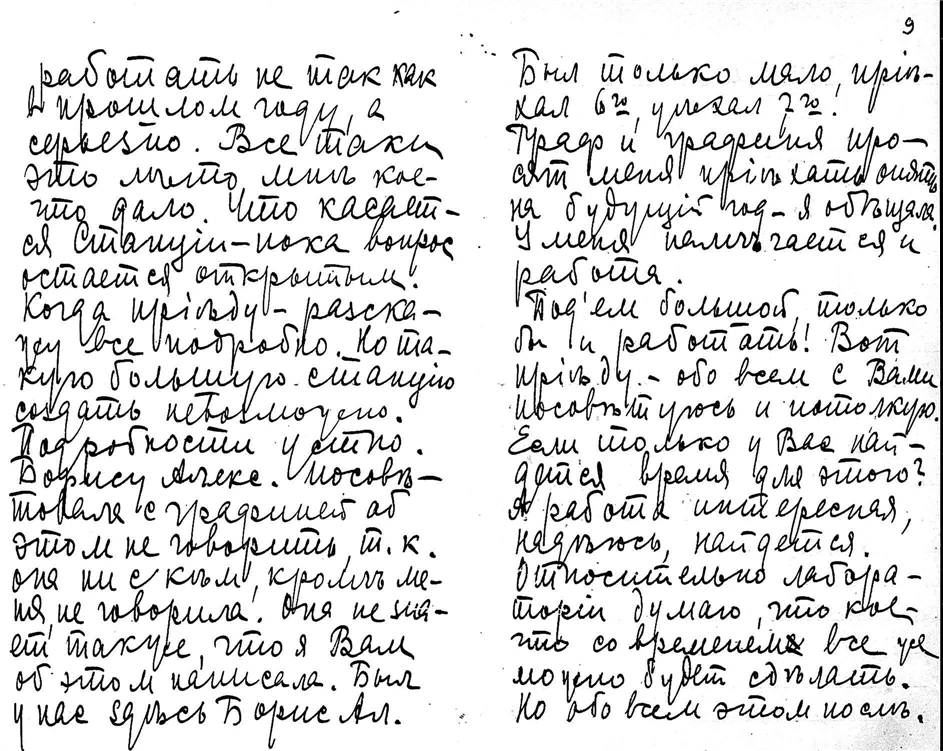 работать не так как
в прошлом году, а
серьезно. Все таки
это лѣто, мнѣ кое-
что дало. Что касает-
ся Станціи – пока вопрос
остается открытым!
Когда пріѣду – разска-
жу все подробно. Но та-
кую большую станцію
создать невозможно.
Подробности устно.
Борису Алекс. посовѣ-
товала с графиней об
этом не говорить, т.к.
она ни с кѣм, кромѣ ме-
ня, не говорила. Она не зна-
ет также, что я Вам
об этом написала. Был
у нас здѣсь Борис Ал.
9
Был только мало, пріѣ-
хал 6го, уѣхал 7го!
Граф и графиня про-
сят меня пріѣхать опять
на будущій год – я обѣщала.
У меня намѣчается и
работа.
Под'ем большой, только
бы и работать! Вот
пріѣду – обо всем с Вами
посовѣтуюсь и потолкую.
Если только у Вас най-
дется время для этого?
А работа интересная,
надѣюсь, найдется.
Относительно лабора-
торіи думаю, что кое-
что со временем все же
можно будет сдѣлать.
Но обо всем этом послѣ.